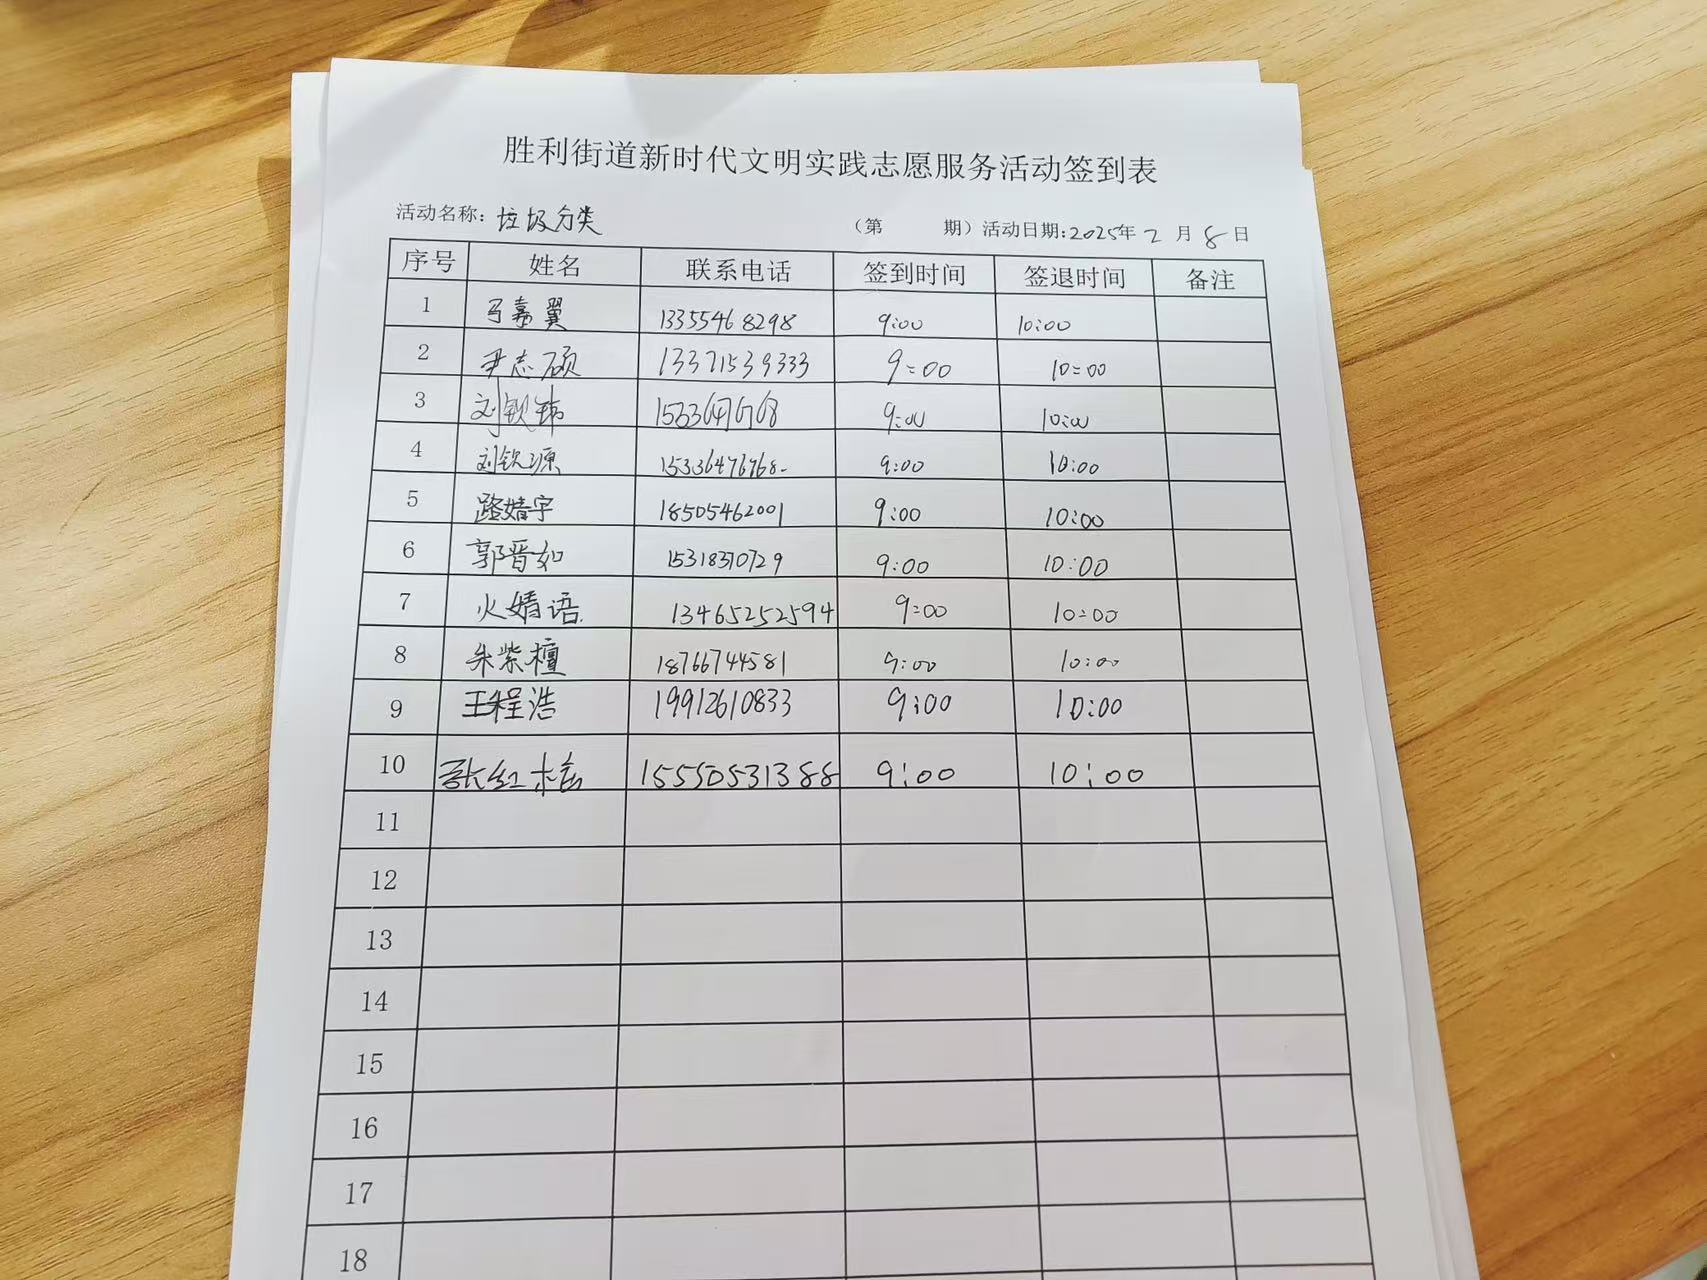 胜利街道新时代文明实践志愿服务活动签到表
活动名称：垃圾分类 （第 期）活动日期：2025年2月8日
序号 姓名 联系电话 签到时间 签退时间 备注
1 马嘉翼 13355468298 9:00 10:00
2 尹志硕 13371539333 9:00 10:00
3 刘钦玮 9:00 10:00
4 刘钦源 15336476768 9:00 10:00
5 路婧宇 18505462001 9:00 10:00
6 郭晋如 15318370729 9:00 10:00
7 火婧语 13465252594 9:00 10:00
8 朱紫檀 18766744581 9:00 10:00
9 王程浩 19912610833 9:00 10:00
10 张红 15550531388 9:00 10:00
11
12
13
14
15
16
17
18